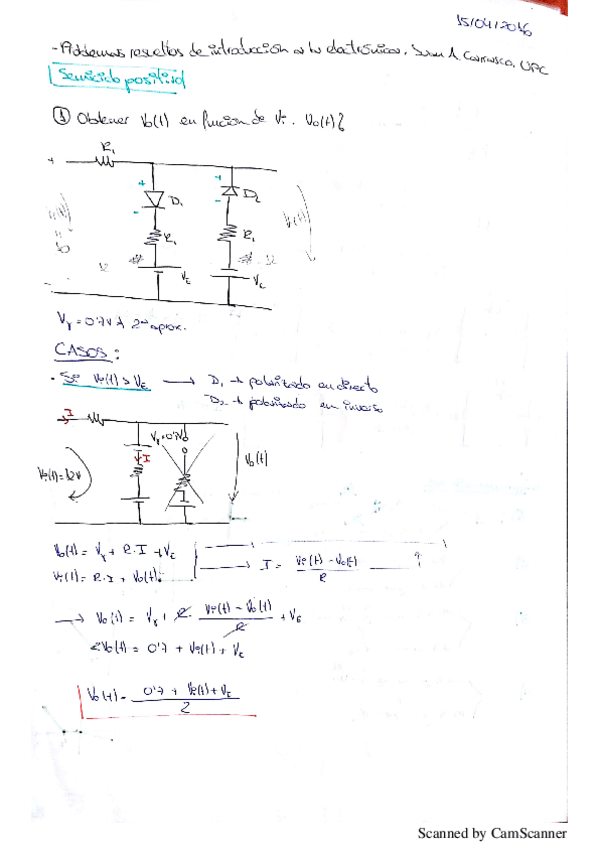 15/04/2016
- Problemas resueltos de introducción a la electrónica, Juan A. Carrasco, UPC
Semiciclo positivo
① Obtener Vo(t) en función de Vi. Vo(t)?
R₁
+
+
+
D₁
D₂
-
-
R₁
R₁
V(t)
12
12
V_E
V_E
-
Vγ = 0'7V à 2ª aprox.
CASOS:
· Si Vi(t) > V_E → D₁ → polarizado en directo
D₂ → polarizado en inverso
I
Vγ = 0'7V
I
Vi(t) = 12V
Vo(t)
Vo(t) = Vγ + R·I + V_E
Vi(t) = R·I + Vo(t)
→ I = Vi(t) - Vo(t) / R
→ Vo(t) = Vγ + R · Vi(t) - Vo(t) / R + V_E
2Vo(t) = 0'7 + Vi(t) + V_E
Vo(t) = 0'7 + Vi(t) + V_E / 2
Scanned by CamScanner